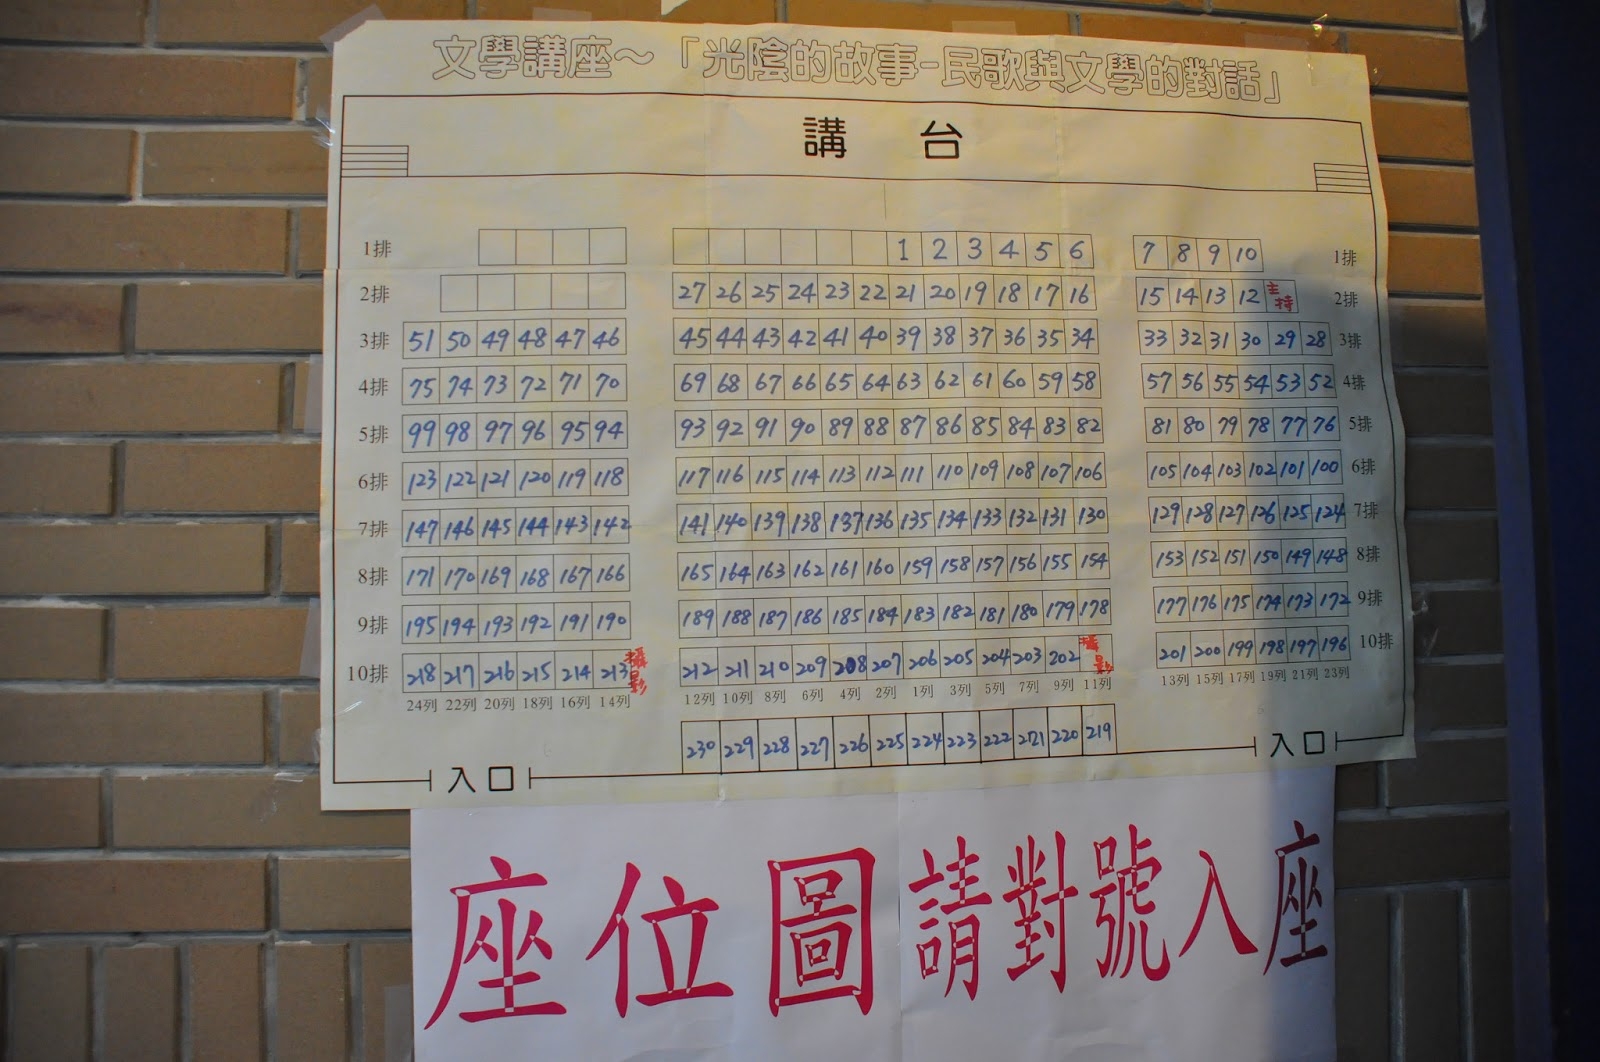 文學講座～「光陰的故事-民歌與文學的對話」
講 台
1排 1 2 3 4 5 6 7 8 9 10 1排
2排 27 26 25 24 23 22 21 20 19 18 17 16 15 14 13 12 主持 2排
3排 51 50 49 48 47 46 45 44 43 42 41 40 39 38 37 36 35 34 33 32 31 30 29 28 3排
4排 75 74 73 72 71 70 69 68 67 66 65 64 63 62 61 60 59 58 57 56 55 54 53 52 4排
5排 99 98 97 96 95 94 93 92 91 90 89 88 87 86 85 84 83 82 81 80 79 78 77 76 5排
6排 123 122 121 120 119 118 117 116 115 114 113 112 111 110 109 108 107 106 105 104 103 102 101 100 6排
7排 147 146 145 144 143 142 141 140 139 138 137 136 135 134 133 132 131 130 129 128 127 126 125 124 7排
8排 171 170 169 168 167 166 165 164 163 162 161 160 159 158 157 156 155 154 153 152 151 150 149 148 8排
9排 195 194 193 192 191 190 189 188 187 186 185 184 183 182 181 180 179 178 177 176 175 174 173 172 9排
10排 218 217 216 215 214 213 攝影 212 211 210 209 208 207 206 205 204 203 202 攝影 201 200 199 198 197 196 10排
24列 22列 20列 18列 16列 14列 12列 10列 8列 6列 4列 2列 1列 3列 5列 7列 9列 11列 13列 15列 17列 19列 21列 23列
230 229 228 227 226 225 224 223 222 221 220 219
入口 入口
座位圖請對號入座